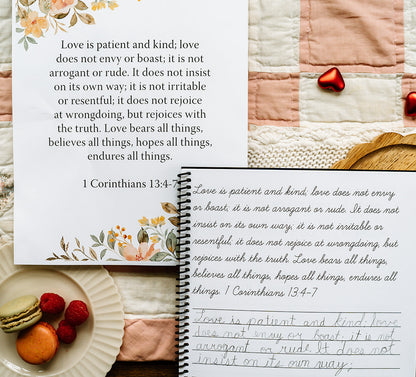 Love is patient and kind; love
does not envy or boast; it is not
arrogant or rude. It does not insist
on its own way; it is not irritable
or resentful; it does not rejoice
at wrongdoing, but rejoices with
the truth. Love bears all things,
believes all things, hopes all things,
endures all things.
1 Corinthians 13:4-7
Love is patient and kind; love does not envy
or boast; it is not arrogant or rude. It does not
insist on its own way; it is not irritable or
resentful; it does not rejoice at wrongdoing, but
rejoices with the truth. Love bears all things,
believes all things, hopes all things, endures all
things. 1 Corinthians 13:4-7
Love is patient and kind; love
does not envy or boast; it is not
arrogant or rude. It does not
insist on its own way;